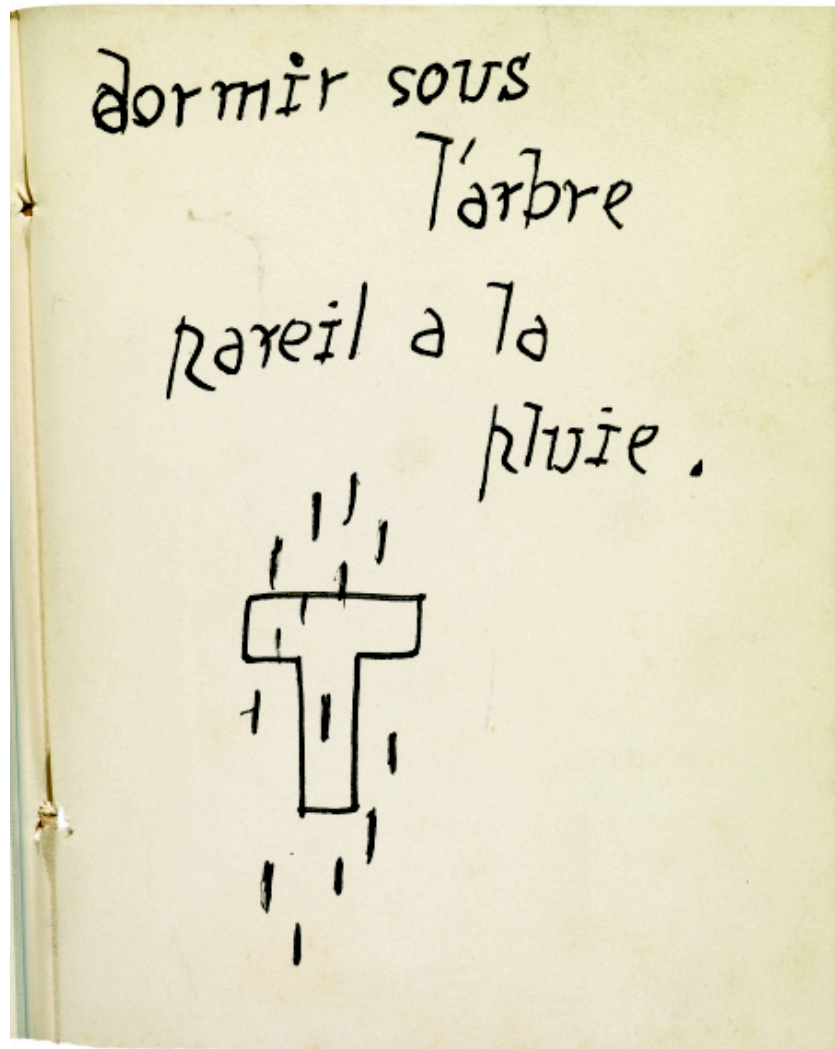 dormir sous
l'arbre
pareil a la
pluie.